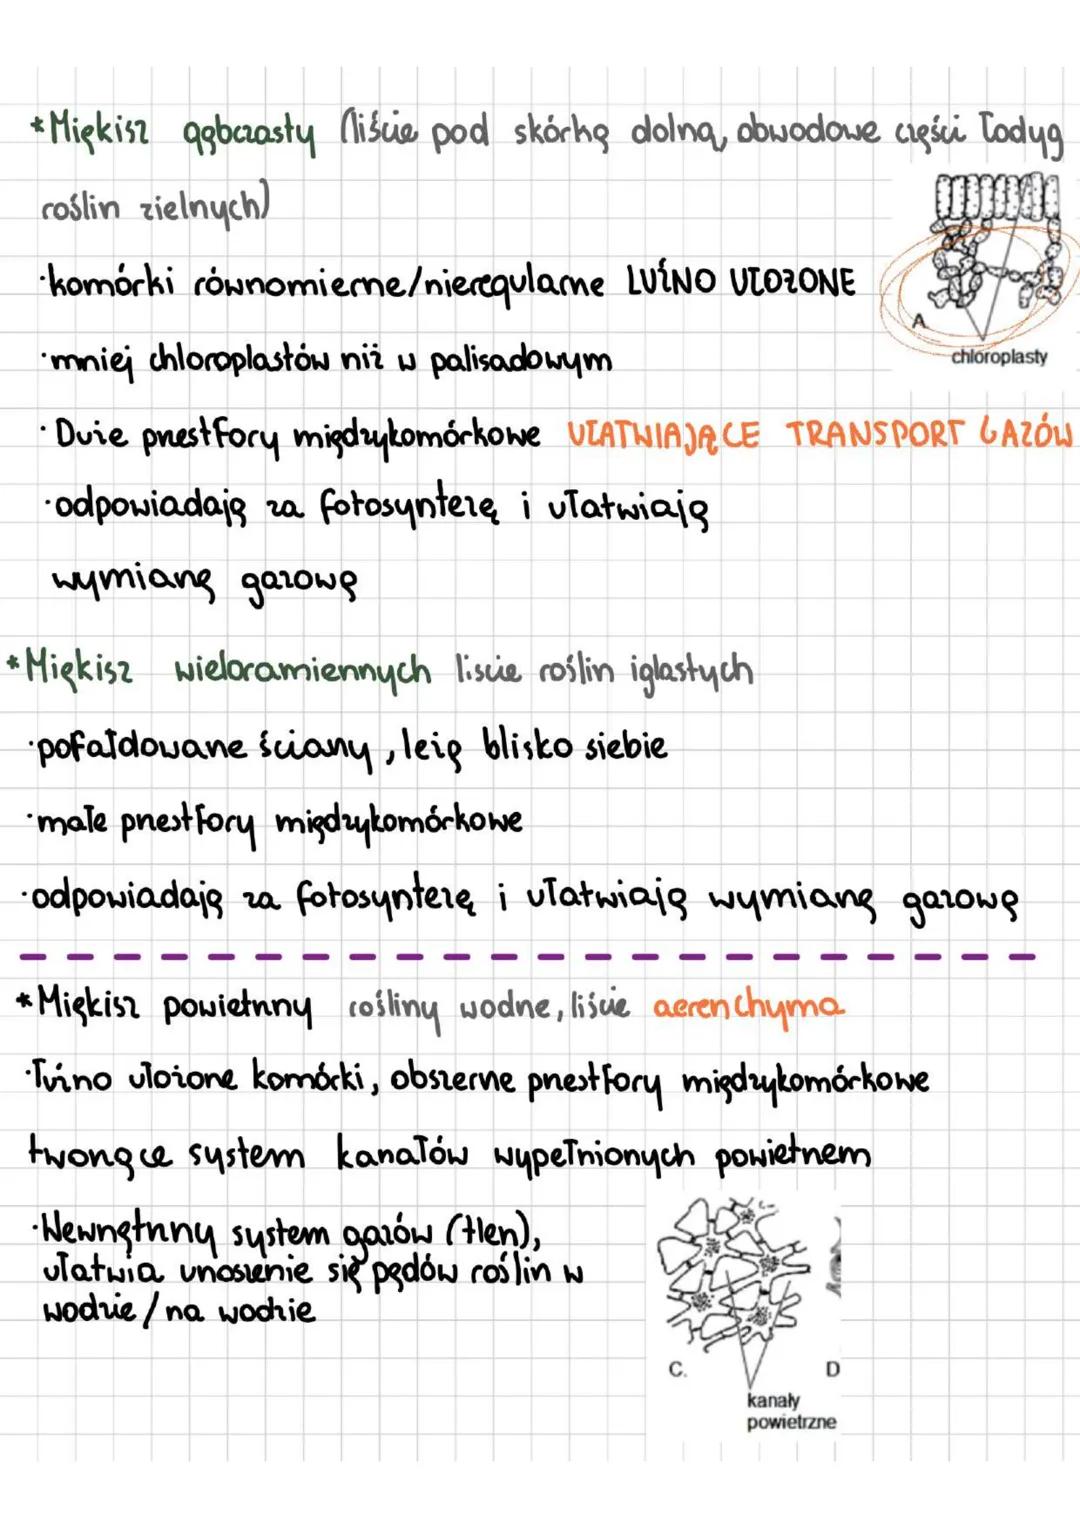 *Miękisz gąbczasty (liście pod skórką dolną, obwodowe części łodyg
roślin zielnych)
A.
chloroplasty
·komórki równomierne/nieregularne LUŹNO UŁOŻONE
·mniej chloroplastów niż w palisadowym
·Duże przestfory międzykomórkowe UŁATWIAJĄCE TRANSPORT GAZÓW
·odpowiadają za fotosyntezę i ułatwiają
wymianę gazową
*Miękisz wieloramiennych liscie roślin iglastych
·pofałdowane ściany, leżą blisko siebie
·małe przestfory międzykomórkowe
·odpowiadają za fotosyntezę i ułatwiają wymianę gazową
*Miękisz powietrzny rośliny wodne, liście aerenchyma
·luźno ułożone komórki, obszerne przestfory międzykomórkowe
tworzące system kanałów wypełnionych powietrzem
·Wewnętrzny system gazów (tlen),
ułatwia unoszenie się pędów roślin w
wodzie/na wodzie
C.
D
kanały
powietrzne